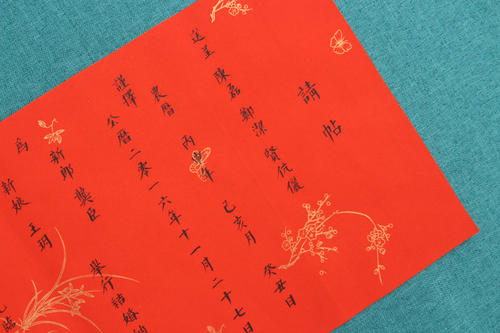 請帖
送呈 陳磊 鄭潔 賢伉儷
謹擇
農曆 丙申年 己亥月 癸丑日
公曆二零一六年十一月二十七日
為
新郎 樊臣
新娘 王玥
舉行結婚